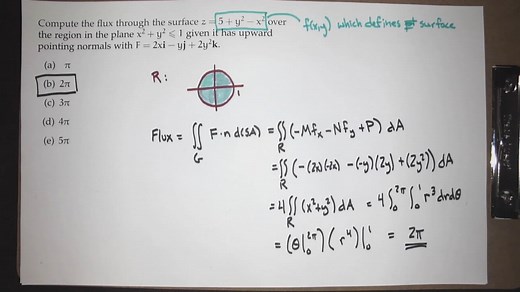 Compute the flux through the surface z = 5 + y² − x² over
the region in the plane x² + y² ⩽ 1 given it has upward
pointing normals with F = 2xi − yj + 2y²k.
f(x,y) which defines surface
(a) π
(b) 2π
(c) 3π
(d) 4π
(e) 5π
R:
1
Flux = ∬_G F·n d(SA) = ∬_R (-Mfx - Nfy + P) dA
= ∬_R (-(2x)(-2x) - (-y)(2y) + (2y²)) dA
= 4 ∬_R (x²+y²) dA = 4 ∫₀^2π ∫₀^1 r³ dr dθ
= (θ|₀^2π) (r⁴)|₀^1 = 2π